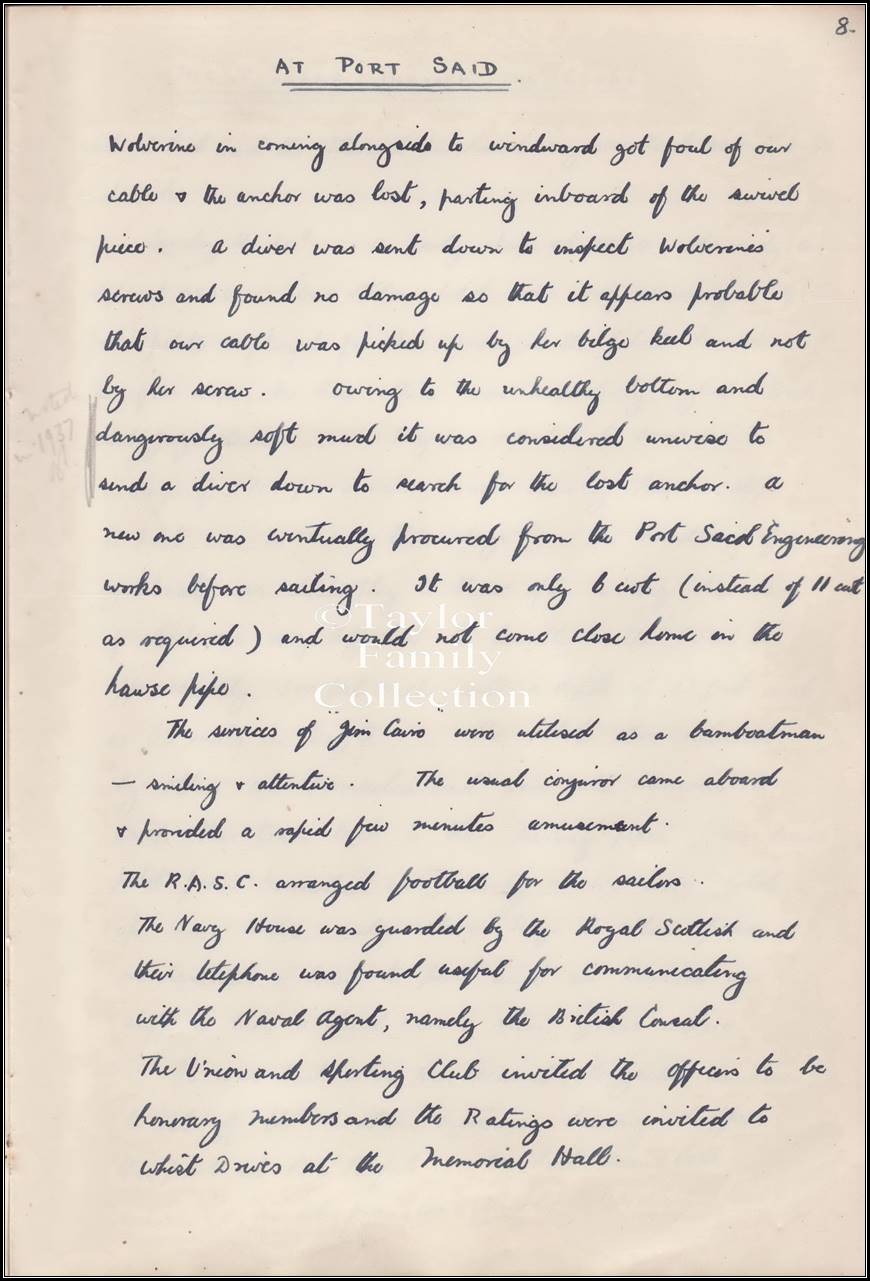 8.
AT PORT SAID.
Wolverine in coming alongside to windward got foul of our
cable & the anchor was lost, parting inboard of the swivel
piece. A diver was sent down to inspect Wolverines'
screws and found no damage so that it appears probable
that our cable was picked up by her bilge keel and not
by her screw. Owing to the unhealthy bottom and
noted
in 1937
dangerously soft mud it was considered unwise to
send a diver down to search for the lost anchor. A
new one was eventually procured from the Port Said Engineering
works before sailing. It was only 6 cwt (instead of 11 cwt
as required) and would not come close home in the
hawse pipe.
©Taylor
Family
Collection
The services of "Jim Cairo" were utilised as a bamboatman
— smiling & attentive. The usual conjuror came aboard
& provided a rapid few minutes amusement.
The R.A.S.C. arranged football for the sailors.
The Navy House was guarded by the Royal Scottish and
their telephone was found useful for communicating
with the Naval Agent, namely the British Consul.
The Union and Sporting Club invited the officers to be
honorary members and the Ratings were invited to
whist Drives at the Memorial Hall.